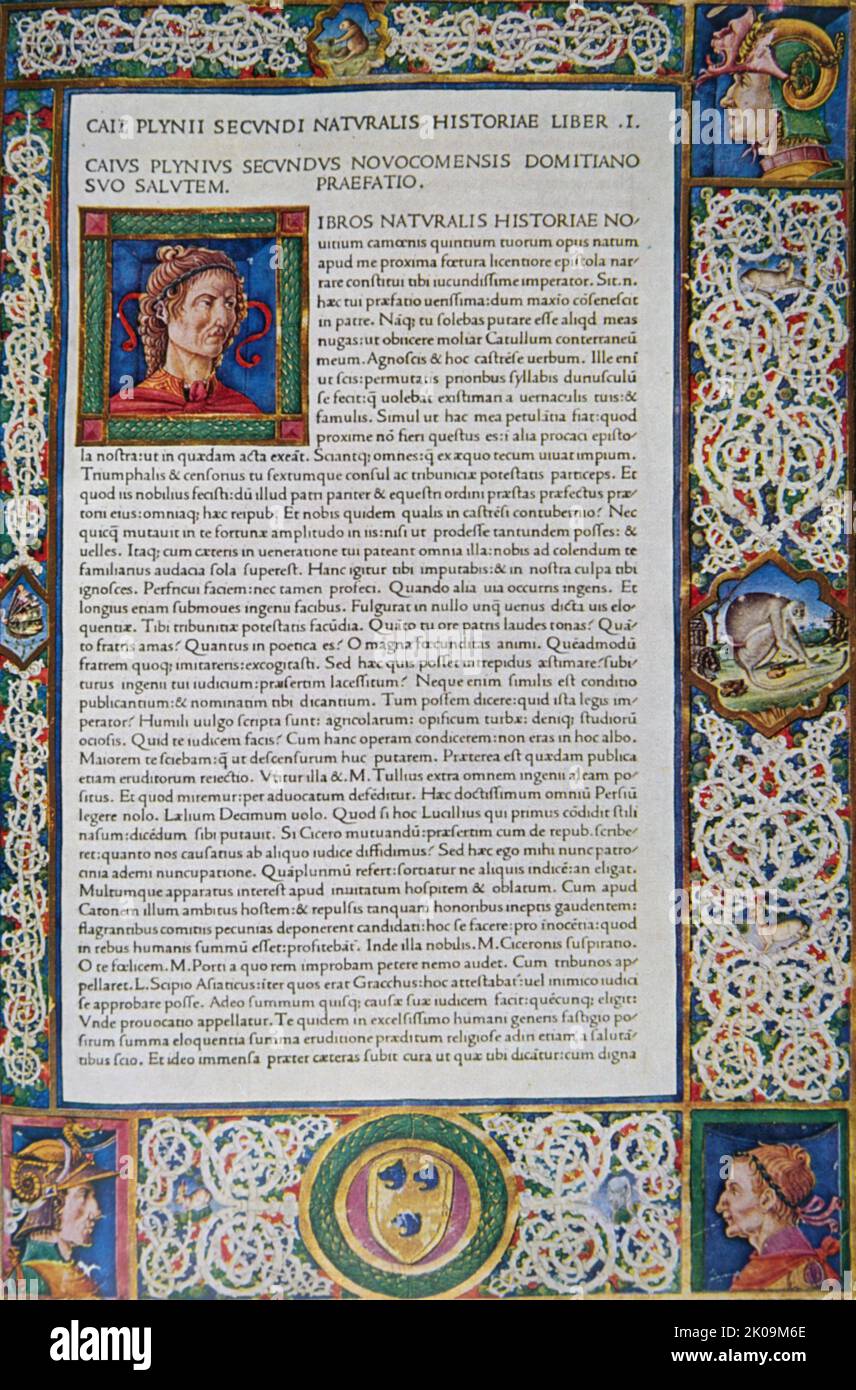 CAII PLYNII SECVNDI NATVRALIS HISTORIAE LIBER .I.
CAIVS PLYNIVS SECVNDVS NOVOCOMENSIS DOMITIANO
SVO SALVTEM. PRAEFATIO.
IBROS NATVRALIS HISTORIAE NO/
uitium camœnis quiritium tuorum opus natum
apud me proxima fœtura licentiore epistola nar/
rare constitui tibi iucundissime imperator. Sit.n.
hæc tui præfatio uerissima:dum maxio cōsenescit
in patre. Nāq; tu solebas putare esse aliqd meas
nugas:ut obiicere moliar Catullum conterraneū
meum. Agnoscis & hoc castrēse uerbum. Ille eni
ut scis:permutatis prioribus syllabis duriusculū
se fecit:q̄ uolebat existimari a uernaculis tuis:&
famulis. Simul ut hac mea petulātia fiat:quod
proxime nō fieri questus es:i alia procaci episto/
la nostra:ut in quædam acta exeāt. Sciantq; omnes:q̄ ex æquo tecum uiuat impium.
Triumphalis & censorius tu sextumque consul ac tribuniciæ potestatis particeps. Et
quod iis nobilius fecisti:dū illud patri pariter & equestri ordini præstas præfectus præ/
torii eius:omniaq; hæc reipub. Et nobis quidem qualis in castrēsi contubernio? Nec
quicq̄ mutauit in te fortunæ amplitudo in iis:nisi ut prodesse tantundem posses: &
uelles. Itaq; cum cæteris in ueneratione tui pateant omnia illa:nobis ad colendum te
familiarius audacia sola superest. Hanc igitur tibi imputabis:& in nostra culpa tibi
ignosces. Perfricui faciem:nec tamen profeci. Quando alia uia occurris ingens. Et
longius etiam submoues ingenii facibus. Fulgurat in nullo unq̄ uerius dicta uis elo/
quentiæ. Tibi tribunitiæ potestatis facūdia. Quāto tu ore patris laudes tonas? Quā/
to fratris amas? Quantus in poetica es? O magna fœcunditas animi. Quēadmodū
fratrem quoq; imitareris:excogitasti. Sed hæc quis posset intrepidus æstimare?subi/
turus ingenii tui iudicium:præsertim lacessitum? Neque enim similis est conditio
publicantium:& nominatim tibi dicantium. Tum possem dicere:quid ista legis im/
perator? Humili uulgo scripta sunt: agricolarum: opificum turbæ: deniq; studiorū
ociosis. Quid te iudicem facis? Cum hanc operam condicerem:non eras in hoc albo.
Maiorem te sciebam:q̄ ut descensurum huc putarem. Præterea est quædam publica
etiam eruditorum reiectio. Vtitur illa &.M.Tullius extra omnem ingenii aleam po/
situs. Et quod miremur:per aduocatum defēditur. Hæc doctissimum omniū Persiū
legere nolo. Lælium Decimum uolo. Quod si hoc Lucillius qui primus cōdidit stili
nasum:dicēdum sibi putauit. Si Cicero mutuandū:præsertim cum de repub. scribe/
ret:quanto nos causatius ab aliquo iudice diffidimus? Sed hæc ego mihi nunc patro/
cinia ademi nuncupatione. Quāplurimū refert:sortiatur ne aliquis iudicē:an eligat.
Multumque apparatus interest apud inuitatum hospitem & oblatum. Cum apud
Catonem illum ambitus hostem:& repulsis tanquam honoribus ineptis gaudentem:
flagrantibus comitiis pecunias deponerent candidati:hoc se facere:pro inocētia:quod
in rebus humanis summū esset:profitebāt. Inde illa nobilis.M.Ciceronis suspiratio.
O te fœlicem.M.Porti a quo rem improbam petere nemo audet. Cum tribunos ap/
pellaret.L.Scipio Asiaticus:iter quos erat Gracchus:hoc attestabat:uel inimico iudici
se approbare posse. Adeo summum quisq; causæ suæ iudicem facit:quēcunq; eligit:
Vnde prouocatio appellatur. Te quidem in excelsissimo humani generis fastigio po/
situm summa eloquentia summa eruditione præditum religiose adiri etiam a salutā/
tibus scio. Et ideo immensa præter cæteras subit cura ut quæ tibi dicātur:cum digna
alamy
Image ID: 2K09M6E
www.alamy.com